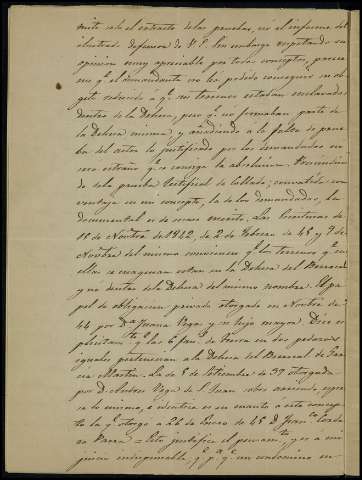 mite solo el estracto de las pruebas, no el informe del
ilustrado defensor de V. S. Sin embargo respetando su
opinion muy apreciable por todos conceptos, parece
me q.e el demandante no ha podido conseguir su ob
geto reducido á q.e sus terrenos estaban enclavados
dentro de la Dehesa, pero q.e no formaban parte de
la Dehesa misma, y añadiendo á la falta de prue
ba del actor lo justificado por los demandados no
sera estraño q.e se consiga la absolucion. Prescindien
do de la prueba testifical de tablado, convatida con
ventaja en mi concepto, la de los demandados, la
documental es de mas merito. Las Escrituras de
11 de Novbre de 1842, de 2 de Febrero de 45 y 9 de
Novbre del mismo convencen q.e los terrenos q.e en
ellas se enagenan estan en la Dehesa del Berrocal
y no dentro de la Dehesa del mismo nombre. El pa
pel de obligacion privada otorgado en Novbre de
44 por D.a Juana Vega y su hijo mayor. Dice es
plicitam.te q.e las 6 fan.s de tierra en dos pedazos
iguales pertenecian a la Dehesa del Berrocal de Gar
cia Martin. La de 8 de Setiembre de 39 otorgada
por D. Andres Vega de S. Juan sobre arriendo, espre
sa lo mismo, é identica es en cuanto á este concep
to la q.e otorgó a 26 de Enero de 45 D. Fran.co
Parra = Esto justifica el pensam.to, y es á mi
juicio indispensable, q.e p.a q.e un condominio en-